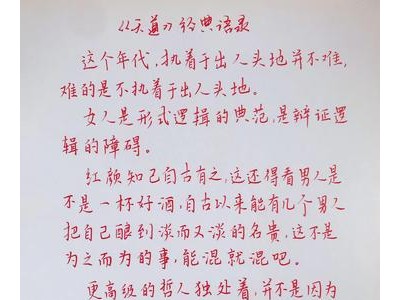 《天道》经典语录
这个年代,执着于出人头地并不难,
难的是不执着于出人头地。
女人是形式逻辑的典范,是辩证逻
辑的障碍。
红颜知己自古有之,这还得看男人是
不是一杯好酒,自古以来能有几个男人
把自己酿到淡而又淡的名贵,这不是
为之而为的事,能混就混吧。
更高级的哲人独处着,并不是因为